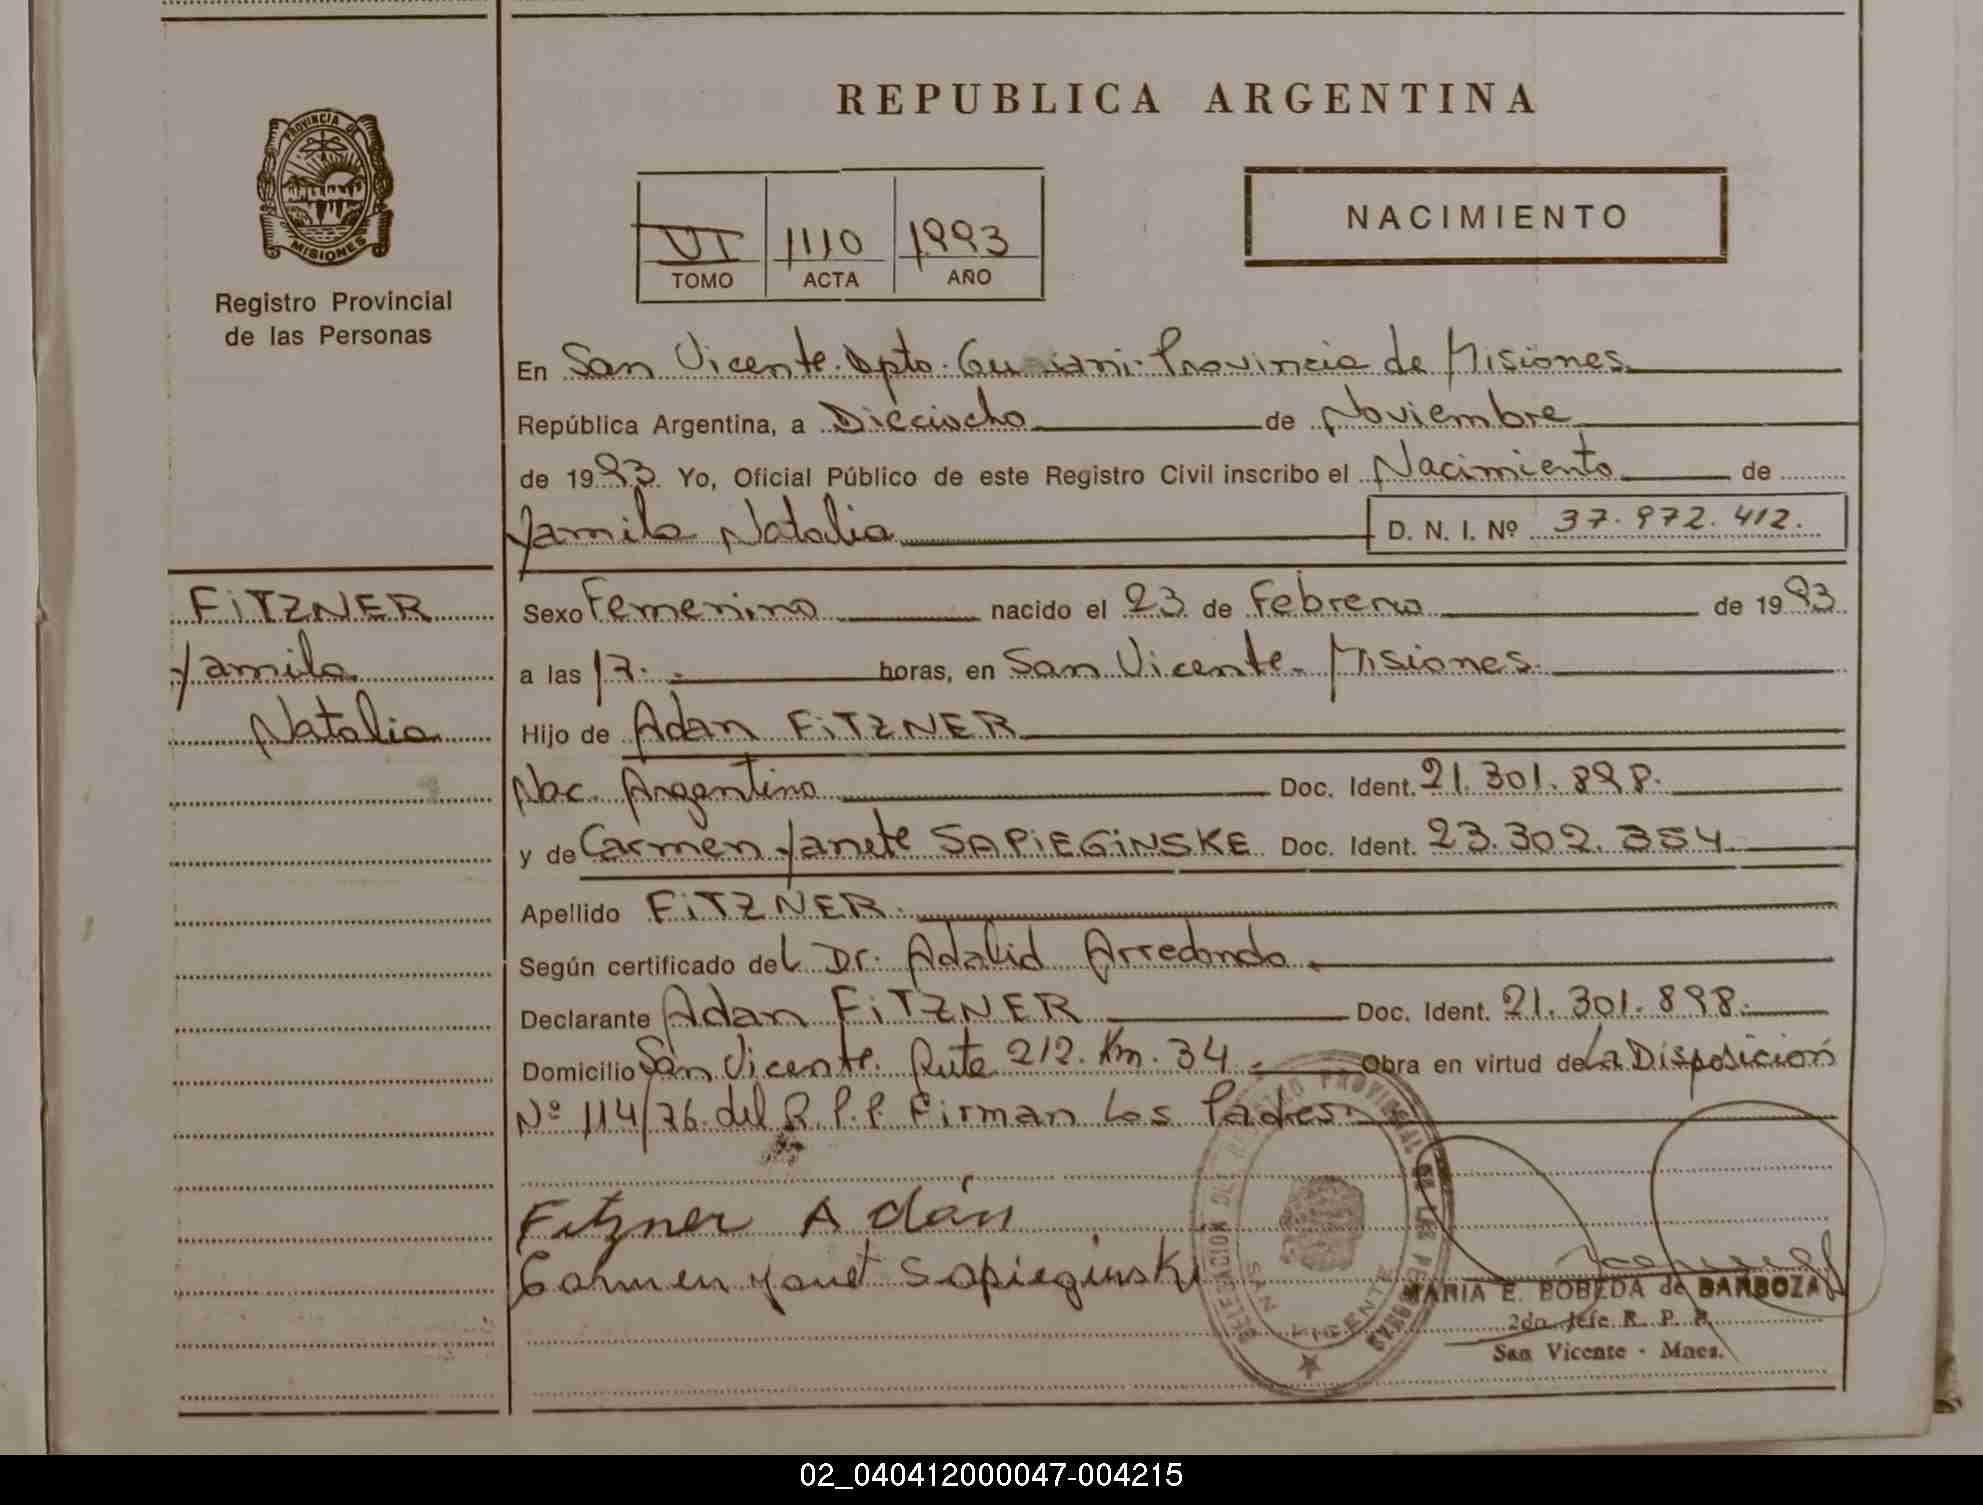 REPUBLICA ARGENTINA
PROVINCIA DE
MISIONES
Registro Provincial
de las Personas
VI 1110 1993
TOMO ACTA AÑO
NACIMIENTO
En San Vicente. Dpto. Guaraní- Provincia de Misiones
República Argentina, a Dieciocho de Noviembre
de 1993. Yo, Oficial Público de este Registro Civil inscribo el Nacimiento de
Yamila Natalia D. N. I. Nº 37.972.412.
FiTZNER
Yamila
Natalia
Sexo Femenino nacido el 23 de Febrero de 1993
a las 17. horas, en San Vicente- Misiones.
Hijo de Adan FiTZNER
Nac. Argentino Doc. Ident. 21.301.898.
y de Carmen Yanete SAPiEGiNSKE Doc. Ident. 23.302.354
Apellido FiTZNER.
Según certificado del Dr. Adalid Arredondo
Declarante Adan FiTZNER Doc. Ident. 21.301.898.
Domicilio San Vicente. Ruta 212. Km. 34 Obra en virtud de La Disposición
Nº 114/76 del R.P.P. Firman Los Padres.
Fitzner Adán
Carmen Yanet Sapieginski
DELEGACION DEL REGISTRO PROVINCIAL DE LAS PERSONAS
SAN VICENTE
MARIA E. BOBEDA de BARBOZA
2do. Jefe R. P. P.
San Vicente - Mnes.
02_040412000047-004215